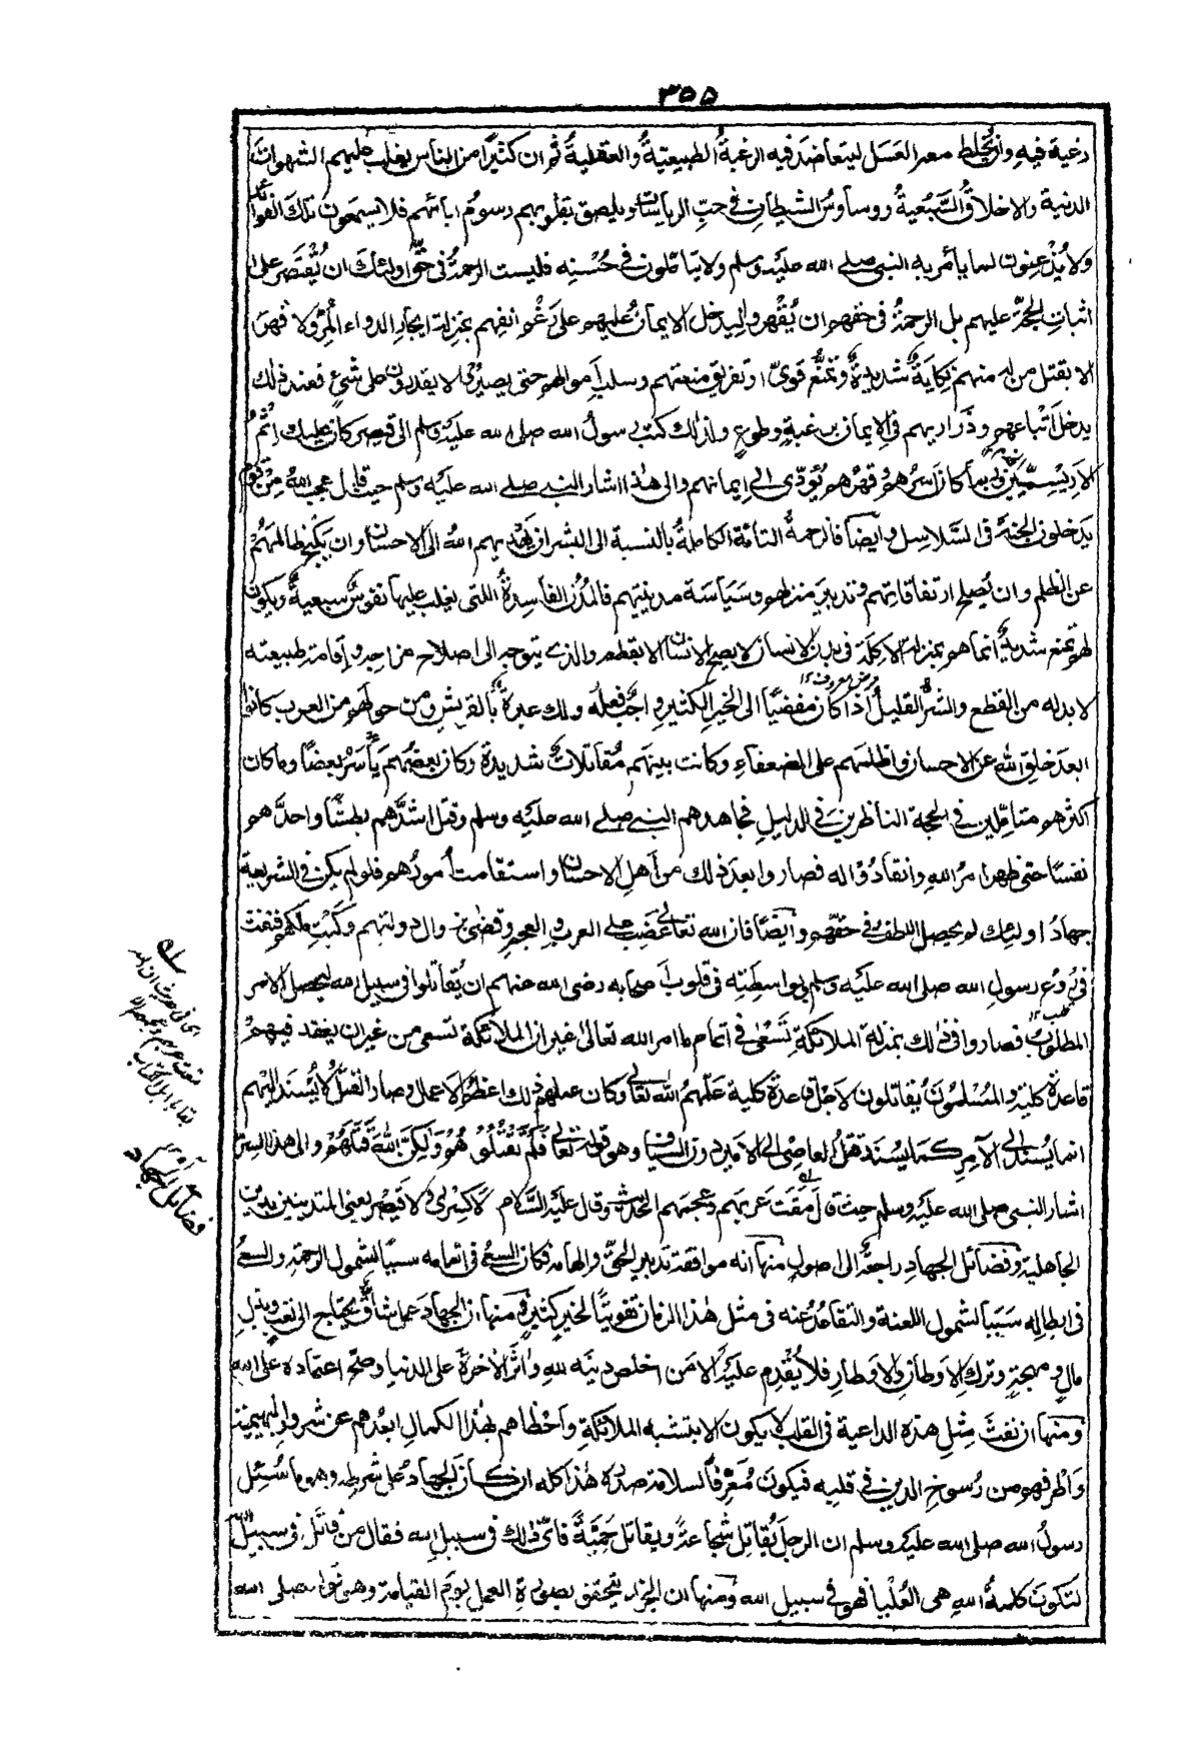 ٣٥٥
رغبة فيه وان يخلط معه العسل ليتعاضد فيه الرغبة الطبيعية والعقلية ثم ان كثيرًا من الناس يغلب عليهم الشهوات
الدنية والاخلاق السبعية ووساوس الشيطان في حب الرياسات ويلصق بقلوبهم رسوم ابائهم فلا يسمعون تلك الفوائد
ولا يذعنون لما يأمر به النبي صلى الله عليه وسلم ولا يتأملون في حسنه فليست الرحمة في حق اولئك ان يقتصر على
اثبات الحجة عليهم بل الرحمة في حقهم ان يقهروا ليدخل الايمان عليهم على رغم انفهم بمنزلة ايجار الدواء المر ولا قهر
الا بقتل من له منهم نكاية شديدة وتمنع قوي او تفريق منعتهم وسلب اموالهم حتى يصيروا لا يقدرون على شيء فعند ذلك
يدخل اتباعهم وذراريهم في الايمان برغبة وطوع ولذلك كتب رسول الله صلى الله عليه وسلم الى قيصر كان عليك اثم
الاريسيين وربما كان اسرهم وقهرهم يؤدي الى ايمانهم والى هذا اشار النبي صلى الله عليه وسلم حيث قال عجب الله من قوم
يدخلون الجنة في السلاسل وايضا فالرحمة التامة الكاملة بالنسبة الى البشر ان يهديهم الله الى الاحسان وان يكبح ظالمهم
عن الظلم وان يصلح ارتفاقاتهم وتدبير منزلهم وسياسة مدينتهم فالمدن الفاسدة اللتي يغلب عليها نفوس سبعية ويكون
لهم تمنع شديد انما هو بمنزلة الاكلة في بدن الانسان لا يصح الانسان الا بقطعه والذي يتوجه الى اصلاح مزاجه واقامة طبيعته
لا بد له من القطع والشر القليل اذا كان مفضيا الى الخير الكثير واجب فعله ولك عبرة بالقريش ومن حولهم من العرب كانوا
ابعد خلق الله عن الاحسان واظلمهم على الضعفاء وكانت بينهم مقاتلات شديدة وكان بعضهم يأسر بعضا وما كان
اكثرهم متاملين في الحجة الناظرين في الدليل فجاهدهم النبي صلى الله عليه وسلم وقتل اشدهم بطشا واحدهم
نفسًا حتى ظهر امر الله وانقادوا له فصاروا بعد ذلك من اهل الاحسان واستقامت امورهم فلو لم يكن في الشريعة
جهاد اولئك لم يحصل اللطف في حقهم وايضًا فان الله تعالى غضب على العرب والعجم وقضى بزوال دولتهم وكبت ملكهم فنفث
في روع رسول الله صلى الله عليه وسلم بواسطته في قلوب اصحابه رضي الله عنهم ان يقاتلوا في سبيل الله ليحصل الامر
المطلوب فصاروا في ذلك بمنزلة الملائكة تسعى في اتمام ما امر الله تعالى غير ان الملائكة تسعى من غير ان يعقد فيهم
قاعدة كلية والمسلمون يقاتلون لاجل قاعدة كلية علمهم الله تعالى وكان عملهم ذلك اعظم الاعمال وصار القتل لا يسند اليهم
انما يسند الى الآمر كما يسند قتل العاصي الى الامير دون السياف وهو قوله تعالى فلم تقتلوهم ولكن الله قتلهم والى هذا السر
اشار النبي صلى الله عليه وسلم حيث قال مقت عربهم وعجمهم الحديث وقال عليه السلام لا كسرى ولا قيصر يعني المتدينين بدين
الجاهلية وفضائل الجهاد راجعة الى اصول منها انه موافقة تدبير الحق والهامه فكان السعي في اتمامه سببًا لشمول الرحمة والسعي
في ابطاله سببا لشمول اللعنة والتقاعد عنه في مثل هذا الزمان تفويتًا لخير كثير ومنها ان الجهاد عمل شاق يحتاج الى تعب وبذل
مال ومهجة وترك الاوطان والاوطار فلا يقدم عليه الا من اخلص دينه لله واثر الآخرة على الدنيا وصح اعتماده على الله
ومنها ان نفث مثل هذه الداعية في القلب لا يكون الا بتشبه الملائكة واحظاهم بهذا الكمال ابعدهم عن شرور البهيمية
واطرفهم من رسوخ الدين في قلبه فيكون معرفا لسلامة صدره هذا كله ان كان الجهاد على شرطه وهو ما سئل
رسول الله صلى الله عليه وسلم ان الرجل يقاتل شجاعة ويقاتل حمية فاي ذلك في سبيل الله فقال من قاتل في سبيل
لتكون كلمة الله هي العليا فهو في سبيل الله ومنها ان الجزاء يتحقق بصورة العمل يوم القيامة وهو قوله صلى الله
فضائل الجهاد